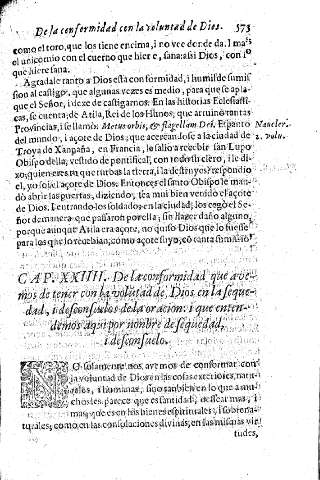 De la conformidad con la voluntad de Dios. 573
como el toro, que los tiene encima, i no vee donde da. I mas
el unicornio con el cuerno que hiere, sana: assi Dios, con lo
que hiere sana.
Agradale tanto a Dios esta conformidad, i humilde sumis
sion al castigo, que algunas vezes es medio, para que se apla-
que el Señor, i dexe de castigarnos. En las historias Eclesiasti-
cas, se cuenta, de Atila, Rei de los Hunos, que arruinò tantas
Provincias, i se llamò Metus orbis, & flagellum Dei, Espanto
Naucler.
del mundo, i açote de Dios; que acercandose a la ciudad de
2. volu.
Troya de Xanpaña, en Francia, le salio a recebir san Lupo
Obispo della, vestido de pontifical, con todo su clero, i le di-
xo, quien eres tu que turbas la tierra, i la destruyes? respondio
el, yo soi el açote de Dios. Entonces el santo Obispo le man-
dò abrir las puertas, diziendo, sea mui bien venido el açote
de Dios. I entrando los soldados en la ciudad, los cegò el Se-
ñor de manera que passaron por ella, sin hazer daño alguno,
porque aunque Atila era açote, no quiso Dios que lo fuesse
para los que lo recebian, como açote suyo, cō tanta sumissiō
CAP. XXIIII. De la conformidad que ave-
mos de tener con la volūtad de Dios en la seque-
dad, i desconsuelos de la oracion: i que enten-
demos aqui por nombre de sequedad,
i desconsuelo.
NO solamente nos avemos de conformar con
la voluntad de Dios en las cosas exteriores, natu-
rales, i humanas, sino tanbien en lo que a mu-
chos les parece que es santidad, dessear mas, i
mas, que es en los bienes espirituales, i sobrena-
turales; como, en las consolaciones divinas, en las mismas vir
tudes,